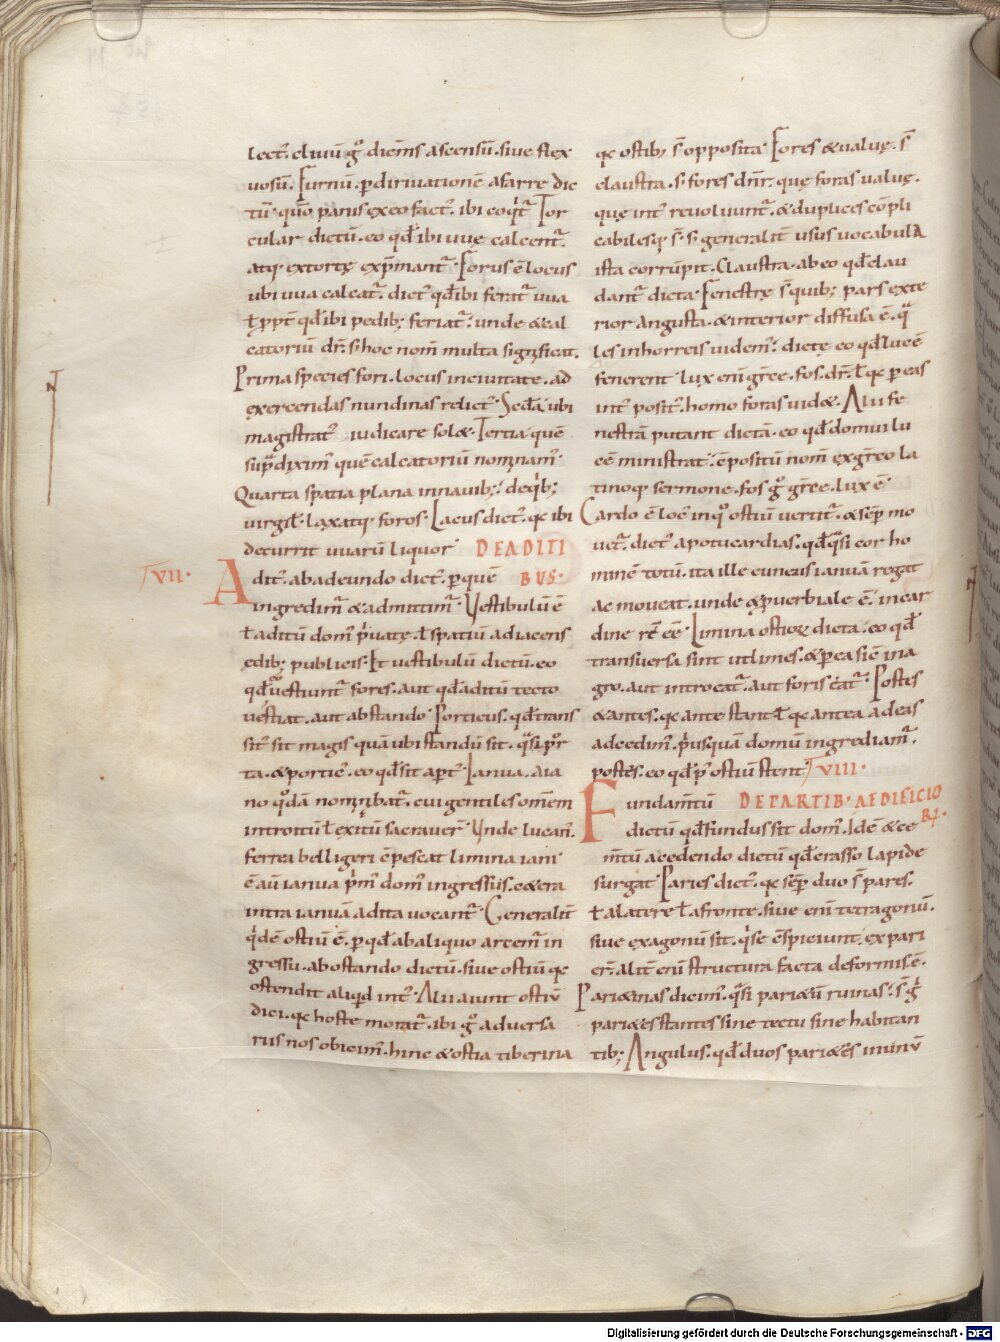 lect̄. clivū gͦ dicim̄s ascensū. sive flex
uosū. Furnū. p̄ dirivationē a farre dic
tū. qūo panis ex eo fact̄. ibi coqit̄. Tor
cular dictū. eo qđ ibi uvę calcent̄.
atq; extortę exp̄mant̄. Forus ē locus
ubi uua calcat̄. dict̄ qđ ibi ferat̄ uua
ł ppt̄ qđ ibi pedib; feriat̄. unde & cal
catoriū dr̄. s; hoc nom̄ multa significat.
Prima species fori. locus in civitate. ad
exercendas nundinas relict̄. Sc̄da ubi
magistrat̄ iudicare sol&. Tertia quē
supͣdixim̄ quē calcatoriū nominam̄.
Quarta spatia plana in navib; de qͥb;
virgil̄. laxatq; foros. Lacus dict̄. qc ibi
decurrit uuarū liquor DE ADITI
BUS.
VII. Adit̄. ab adeundo dict̄. p̄ quē
ingredim̄ & admittim̄. Vestibulū ē
ł aditū dom̄ pͥvatę. ł spatiū adiacens
ędib; publicis. Et vestibulū dictū. eo
qđ vestiunt̄ fores. aut qđ aditū tecto
vestiat. aut ab stando. Porticus. qđ trans
sit̄ sit magis quā ubi standū sit. qͣsi por
ta. & portic̄. eo qđ sit apt̄. Ianua. a ia
no qͦdā nominbat̄. cui gentiles omnem
introitū ł exitū sacraver̄. Vnde lucan̄.
ferrea belligeri cōpescat limina iani
ē aū ianua pͥm̄ dom̄ ingressus. c&era
intra ianuā adita vocant̄. Generalit̄
qͥdē ostiū ē. p̄ qđ ab aliquo arcem̄ in
gressu. ab ostando dictū. sive ostiū qc
ostendit aliqͥd int̄. Alii aiunt ostiū
dici. qc hoste morat̄. ibi gͦ adversa
rus nos obicim̄. hinc & ostia tiberina
qc ostib; s̄ opposita. Fores & valvę. s̄
claustra. s; fores dn̄r. quę foras valvę.
quę int̄ revolvunt̄. & duplices cōpli
cabilesq; s̄. s; generalit̄ usus vocabula
ista corrūpit. Claustra. ab eo qđ clau
dant̄ dicta. Fenestrę s̄ quib; pars exte
rior angusta. & interior diffusa ē. qͣ
les in horreis uidem̄. dictę eo qđ lucē
fenerent. lux eni grēce. fos. dr̄. ł qc p̄ eas
int̄ posit̄. homo foras uid&. Alii fe
nestrā putant dictā. eo qđ domui lu
cē ministrat. cōpositū nom̄ ex grēco la
tinoq; sermone. fos gͦ grēce. lux ē.
Cardo ē loc̄ in qͦ ostiū vertit̄. & semp̄ mo
vet̄. dict̄ apotucardias. qđ qͣsi cor ho
minē totū. ita ille cuneus ianuā regat
ac moveat. unde & pͦverbiale ē. in car
dine rē cē. Limina ostiorū dicta. eo qđ
transversa sint ut limes. & p̄ ea sic in a
gro. aut introeat̄. aut foris eat̄. Postes
& antes. qc ante stant ł qc antea ad eas
accedim̄. pͥusquā domū ingrediam̄.
postes. eo qđ p̄ ostiū stent. VIII.
Fundam̄tū DE PARTIB. AEDIFICIO
RꝜ.
dictū qđ fundus sit dom̄. Idē & ce
m̄tū a cedendo dictū qđ crasso lapide
surgat. Paries dict̄. qc semp̄ duo s̄ pares.
ł a latere ł a fronte. sive eni tetragonū.
sive exagonū sit. qͥ se cōspiciunt. ex pari
er̄. alit̄ eni structura facta deformis. ē.
Pari&inas dicim̄. qͣsi pari&ū ruinas. s̄ gͥ
pari&es stantes sine tectu sine habitan
tib; Angulus. qđ duos pari&es in unū